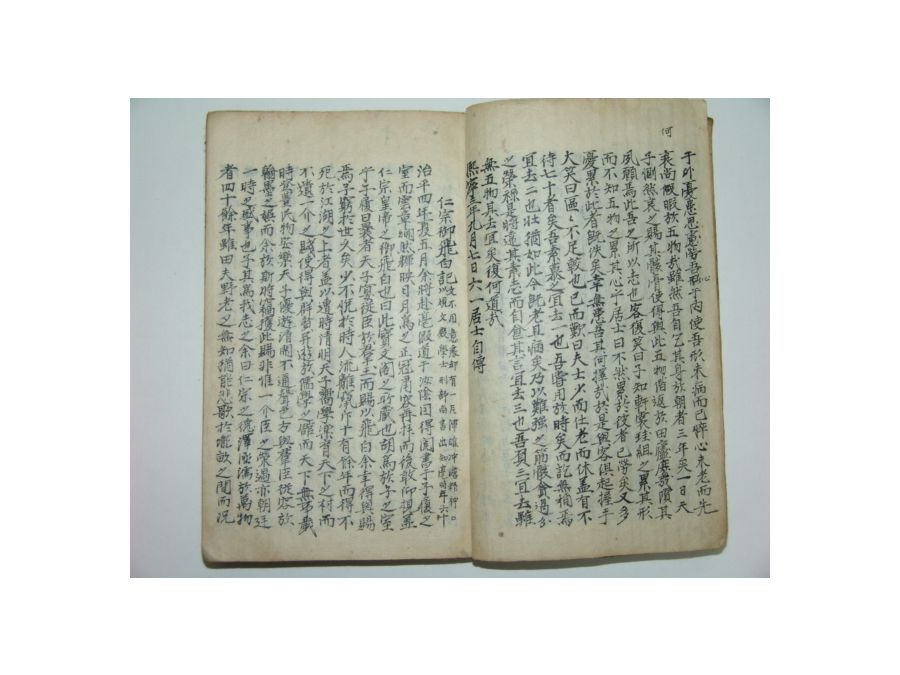 何
于外憂患思慮勞吾心形于內使吾形未病而已悴心未老而先
衰尚暇於五物哉雖然吾自乞其身於朝者三年矣一日天
子惻然哀之賜其骸骨使得與此五物偕返於田廬庶幾償其
夙願焉此吾之所以志也客復笑曰子知軒裳珪組之累其形
而不知五物之累其心乎居士曰不然累於彼者已勞矣又多
憂累於此者既佚矣幸無患吾其何擇哉於是與客俱起握手
大笑曰區區不足較也已而歎曰夫士少而仕老而休盖有不
待七十者矣吾素慕之宜去一也吾嘗用於時矣而訖無稱焉
宜去二也壯猶如此今既老且病矣乃以難強之筋骸貪過分
之榮祿是將違其素志而自食其言宜去三也吾負三宜去雖
無五物其去宜矣復何道哉
熙寧三年九月七日六一居士自傳
仁宗御飛白記
治平四年夏五月余將赴亳假道于汝陰因得閱書于子履之
室而雲章爛然輝映日月為之正冠肅容再拜而後敢仰視盖
仁宗皇帝之御飛白也曰此寶文閣之所藏也胡為於子之室
乎子履曰曩者天子宴從臣於群玉而賜以飛白余幸得與賜
焉予窮於世久矣少不悅於時人流離竄斥十有餘年而得不
死於江湖之上者盖以遭時清明天子嚮學樂育天下之材而
不遺一介之賤使得與群賢並遊於儒學之館而天下無事歲
時豐登民物安樂天子優遊清閑不邇聲色方與群臣從容於
翰墨之娛而余於斯時竊獲此賜非惟一介臣之榮遇亦朝廷
一時之盛事也子其為我志之余曰仁宗之德澤涵濡於萬物
者四十餘年雖田夫野老之無知猶能悲歌於壟畝之間而況